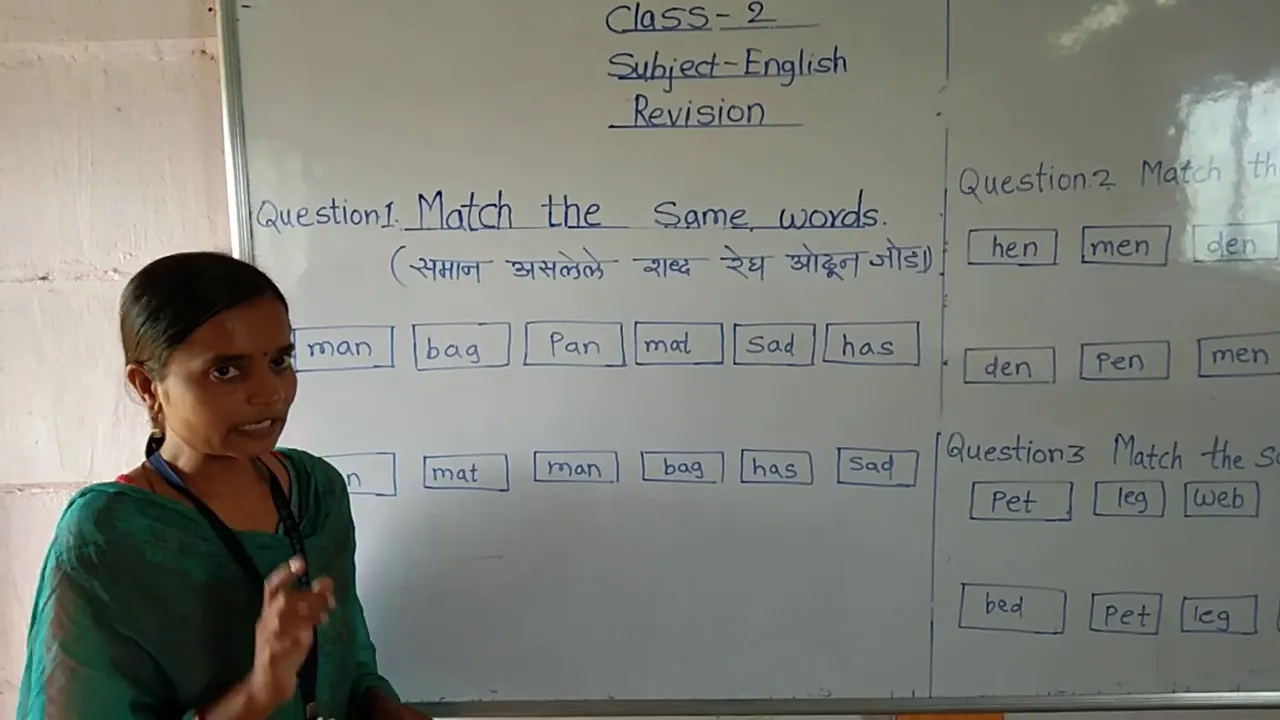 Class - 2
Subject - English
Revision
Question1. Match the same words.
(समान असलेले शब्द रेघ ओढून जोडा)
man bag Pan mat sad has
n mat man bag has sad
Question.2 Match th
hen men den
den Pen men
Question3 Match the sa
Pet leg web
bed Pet leg